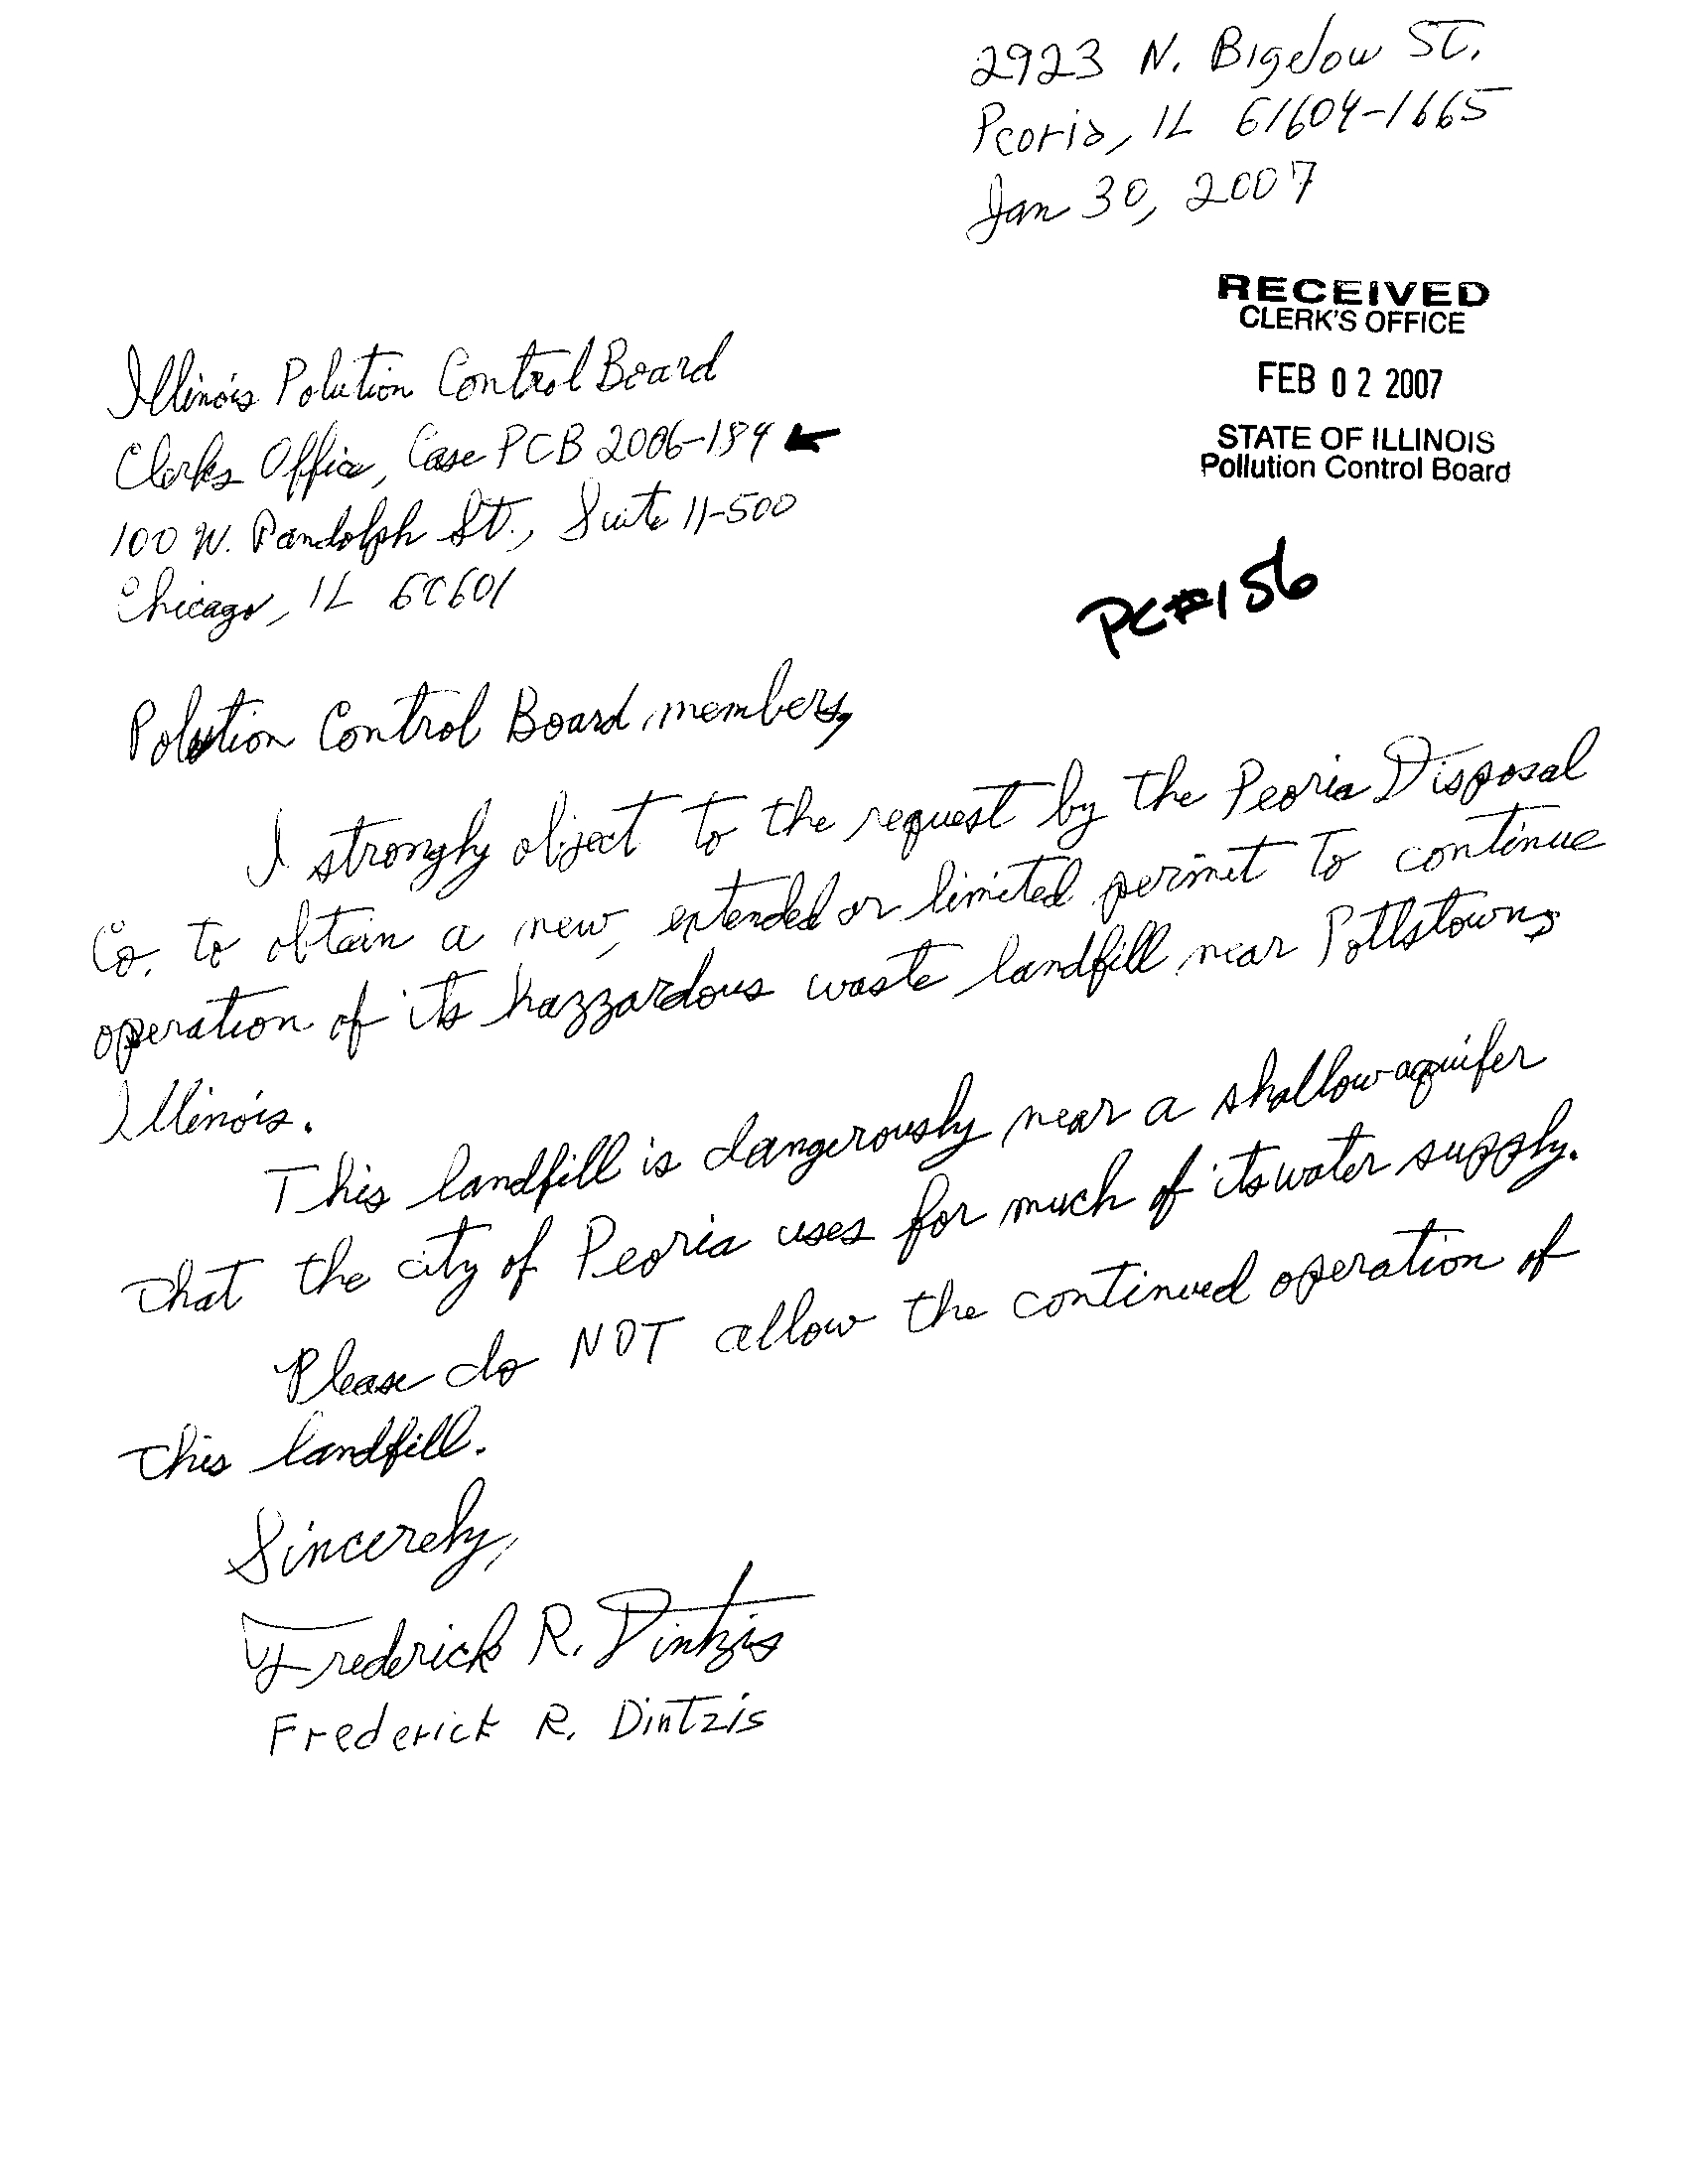 2923 N. Bigelow St.
Peoria, IL 61604-1665
Jan 30, 2007
RECEIVED
CLERK'S OFFICE
FEB 02 2007
STATE OF ILLINOIS
Pollution Control Board
Illinois Polution Control Board
Clerks Office, Case PCB 2006-184
100 W. Randolph St., Suite 11-500
Chicago, IL 60601
PC#156
Polution Control Board members,
I strongly object to the request by the Peoria Disposal
Co. to obtain a new, extended or limited permit to continue
operation of its hazzardous waste landfill near Pottstown,
Illinois.
This landfill is dangerously near a shallow aquifer
that the city of Peoria uses for much of its water supply.
Please do NOT allow the continued operation of
this landfill.
Sincerely,
Frederick R. Dintzis
Frederick R. Dintzis